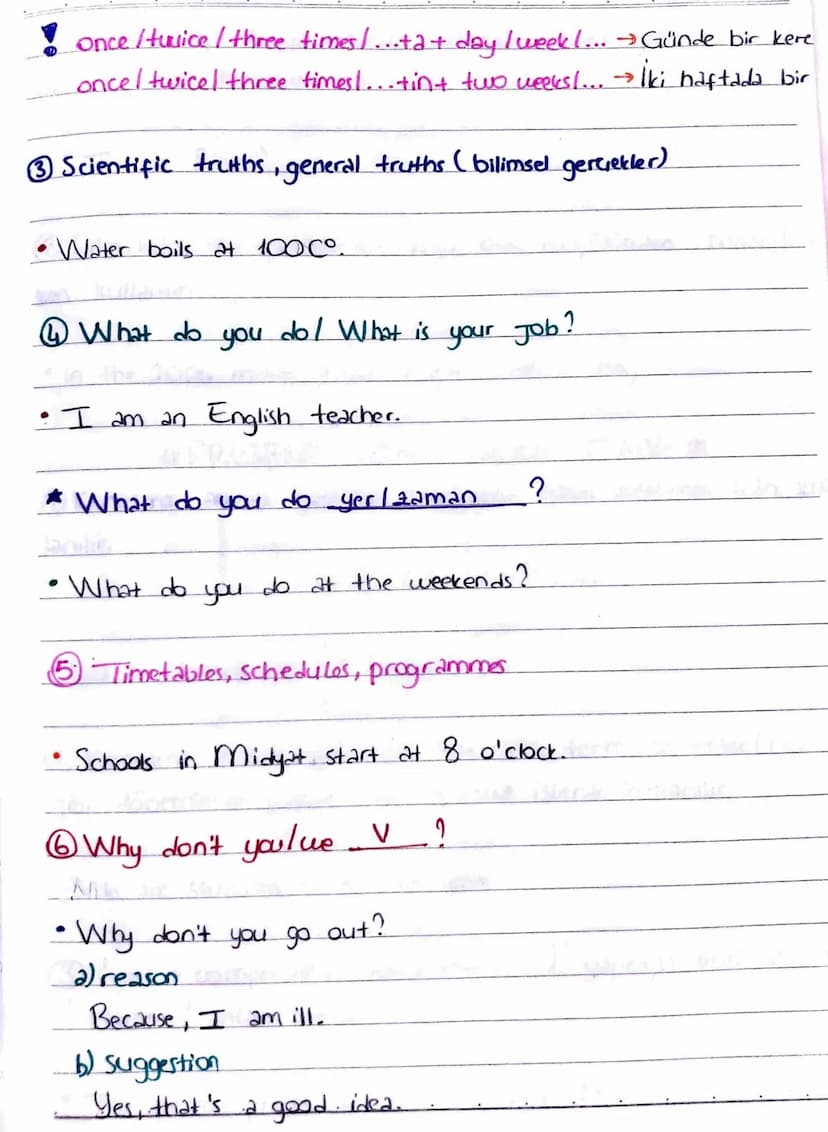 ! once/twice/three times/...+a+ day/week/... → Günde bir kere
once/twice/three times/...+in+ two weeks/... → İki haftada bir
③ Scientific truths, general truths (bilimsel gerçekler)
• Water boils at 100C°.
④ What do you do/ What is your job?
• I am an English teacher.
* What do you do yer/zaman ?
• What do you do at the weekends?
⑤ Timetables, schedules, programmes
• Schools in Midyat start at 8 o'clock.
⑥ Why don't you/we V ?
• Why don't you go out?
a) reason
Because, I am ill.
b) suggestion
Yes, that's a good idea.